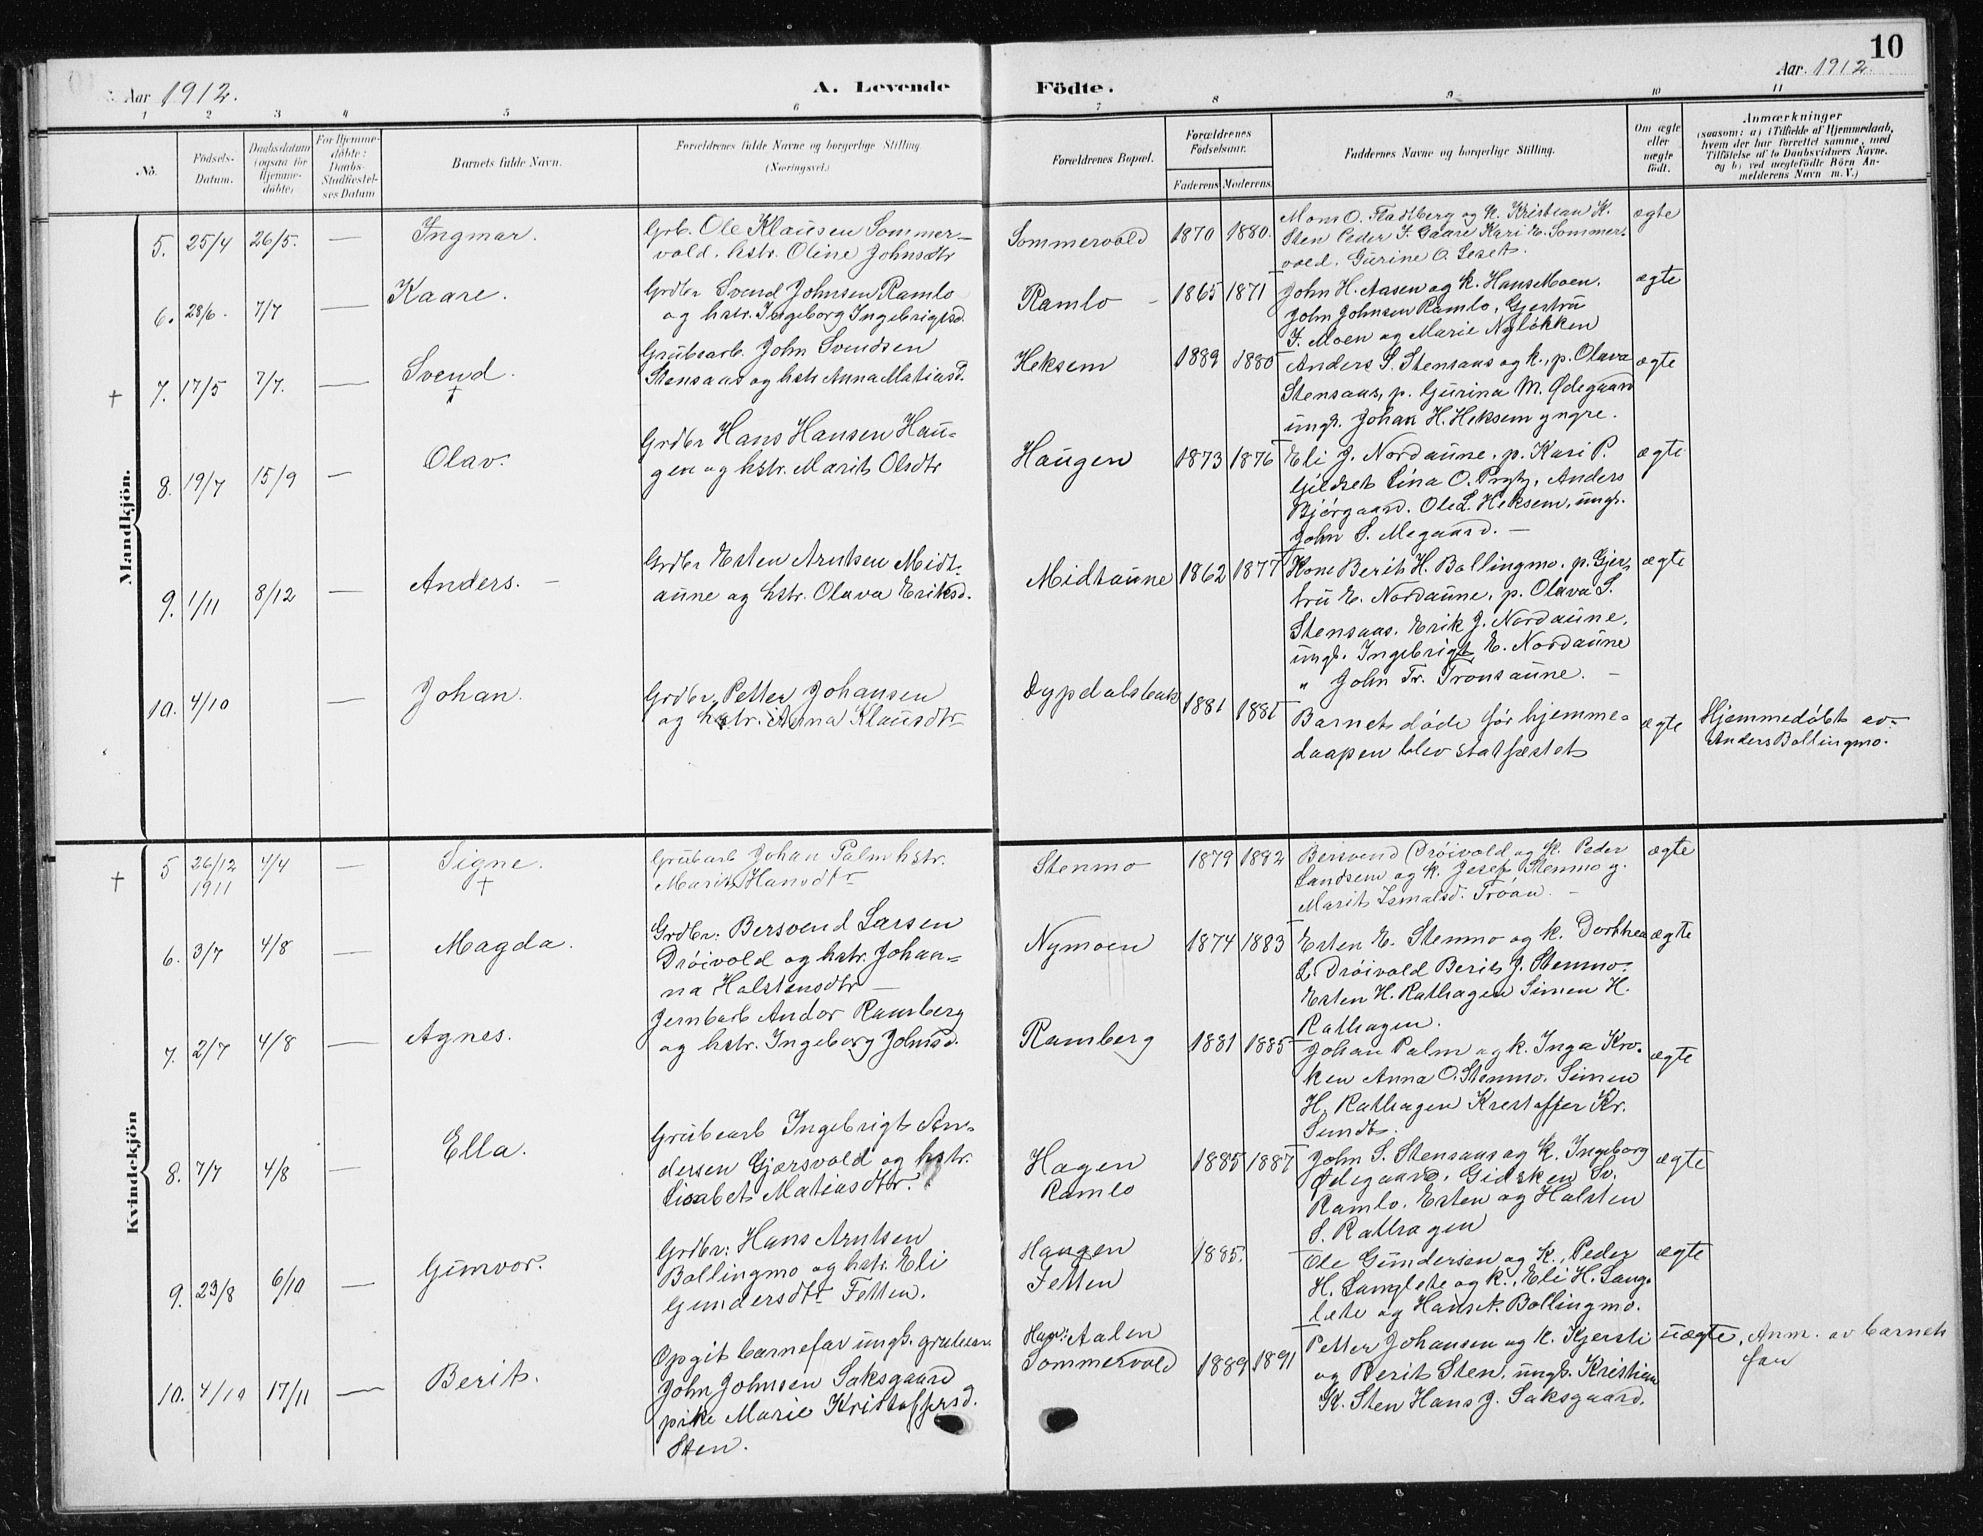 10
Aar 1912.
A. Levende Födte.
Aar. 1912.
1 2 3 4 5 6 7 8 9 10 11
No.
Födsels-Datum.
Daabsdatum (ogsaa for Hjemme-döbte)
For Hjemme-döbte: Daabs-Stadfæstel-ses Datum
Barnets fulde Navn.
Forældrenes fulde Navne og borgerlige Stilling.
(Næringsvei.)
Forældrenes Bopæl.
Forældrenes Födselsaar.
Faderens. Moderens.
Faddernes Navne og borgerlige Stilling.
Om ægte eller uægte födt.
Anmærkninger
(saasom: a) i Tilfælde af Hjemmedaab, hvem der har forrettet samme, med Tilföielse af to Daabsvidners Navne. og b) ved uægtefödte Börn An-melderens Navn m. V.)
Mandkjön.
5. 25/4 26/5. — Ingmar.
Grb. Ole Klausen Sommer-
vold. hstr. Oline Johnsdtr
Sommervold 1870 1880.
Mons O. Fladtberg og k. Kristian K.
Sten Peder J. Gaare Kari E. Sommer-
vold. Gurine O.
ægte
6. 28/6. 7/7 — Kaare.
Grdbr Svend Johnsen Ramlo
og hstr. Ingeborg Ingebrigtsd.
Ramlo - 1865 1871
John H. Aasen og k. Hans Moen.
John Johnsen Ramlo, Gjertru
J. Moen og Marie Nyløkken
ægte
† 7. 17/5 7/7. — Svend. †
Grubearb. John Svendsen
Stensaas og hstr Anna Matiasd.
Heksem 1889 1880
Anders S. Stensaas og k., p. Olava
Stensaas, p. Gurina M. Ødegaard
ungk. Johan H. Heksem yngre.
ægte
8. 19/7 15/9 — Olav.
Grdbr Hans Hansen Hau-
gen og hstr. Marit Olsdtr
Haugen 1873 1876
Eli J. Nordaune, p. Kari P.
Gildset Lina O. Prytz, Anders
Bjørgaard. Ole L. Heksem, ungk.
John S. Megaard. —
ægte
9. 1/11 8/12 — Anders. —
Grdbr Esten Arntsen Midt-
aune og hstr. Olava Eriksd.
Midtaune 1862 1877
Kone Berit H. Bollingmo. p. Gjer-
tru E. Nordaune, p. Olava S.
Stensaas. Erik J. Nordaune,
ungk. Ingebrigt E. Nordaune
" John Tr. Tronsaune. —
ægte
10. 4/10 — Johan.
Grdbr. Petter Johansen
og hstr. Anna Klausdtr
Dypdalsbak 1881 1881
Barnet døde før hjemme-
daapen blev statfæstet
ægte
Hjemmedøbt av
Anders Bollingmo.
Kvindekjön
† 5 26/12 1911 4/4 — Signe. †
Grubearb Johan Palm hstr.
Marit Hansdtr
Stenmo 1879 1892
Bersvend Drøivold og k. Peder
Sandsem og k. Josef Stenmo g.
Marit Ismalsd. Troan. —
ægte
6. 3/7 4/8 — Magda.
Grdbr. Bersvend Larsen
Drøivold og hstr. Johan-
na Halstensdtr —
Nymoen 1874 1883
Esten E. Stenmo og k. Dorthea
L. Drøivold Berit J. Stenmo.
Esten H. Rathagen Simen H.
Rathagen.
ægte
7. 2/7 4/8 — Agnes.
Jernbarb Andor Ramberg
og hstr. Ingeborg Johnsd.
Ramberg 1881 1885
Johan Palm og k. Inga Kro-
ken Anna O. Stenmo. Simen
H. Rathagen Krestoffer Kr.
Sundt.
ægte
8. 7/7 4/8 — Ella.
Grubearb Ingebrigt An-
dersen Gjærsvold og hstr.
Lisabet Matiasdtr.
Hagen
Ramlo
1885 1887
John S. Stensaas og k. Ingeborg
Ødegaard, Gidsken Sv.
Ramlo. Esten og Halsten
S. Rathagen
ægte
9. 23/8 6/10 — Gunvor.
Grdbr: Hans Arntsen
Bollingmo og hstr. Eli
Gundersdtr Fetten.
Haugen
Fetten
1885.
Ole Gundersen og k., Peder
H. Langlete og k., Eli H. Lang-
lete og Hans A. Bollingmo.
ægte
10. 4/10 17/11 — Berit.
Opgit barnefar ungk. grubear.
John Johnsen Saksgaard
pike Marie Kristoffersd.
Sten.
Aalen
Sommervold
1889 1891
Petter Johansen og k. Kjersti
og Berit Sten, ungk. Kristian
K. Sten Hans J. Saksgaard.
uægte. Anm. av barnets
far